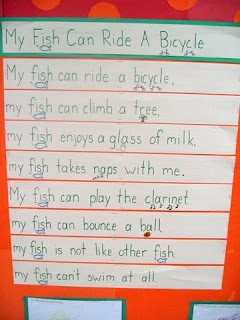 My Fish Can Ride A Bicycle
My fish can ride a bicycle,
my fish can climb a tree,
my fish enjoys a glass of milk,
my fish takes naps with me.
My fish can play the clarinet
my fish can bounce a ball.
my fish is not like other fish.
my fish can't swim at all.